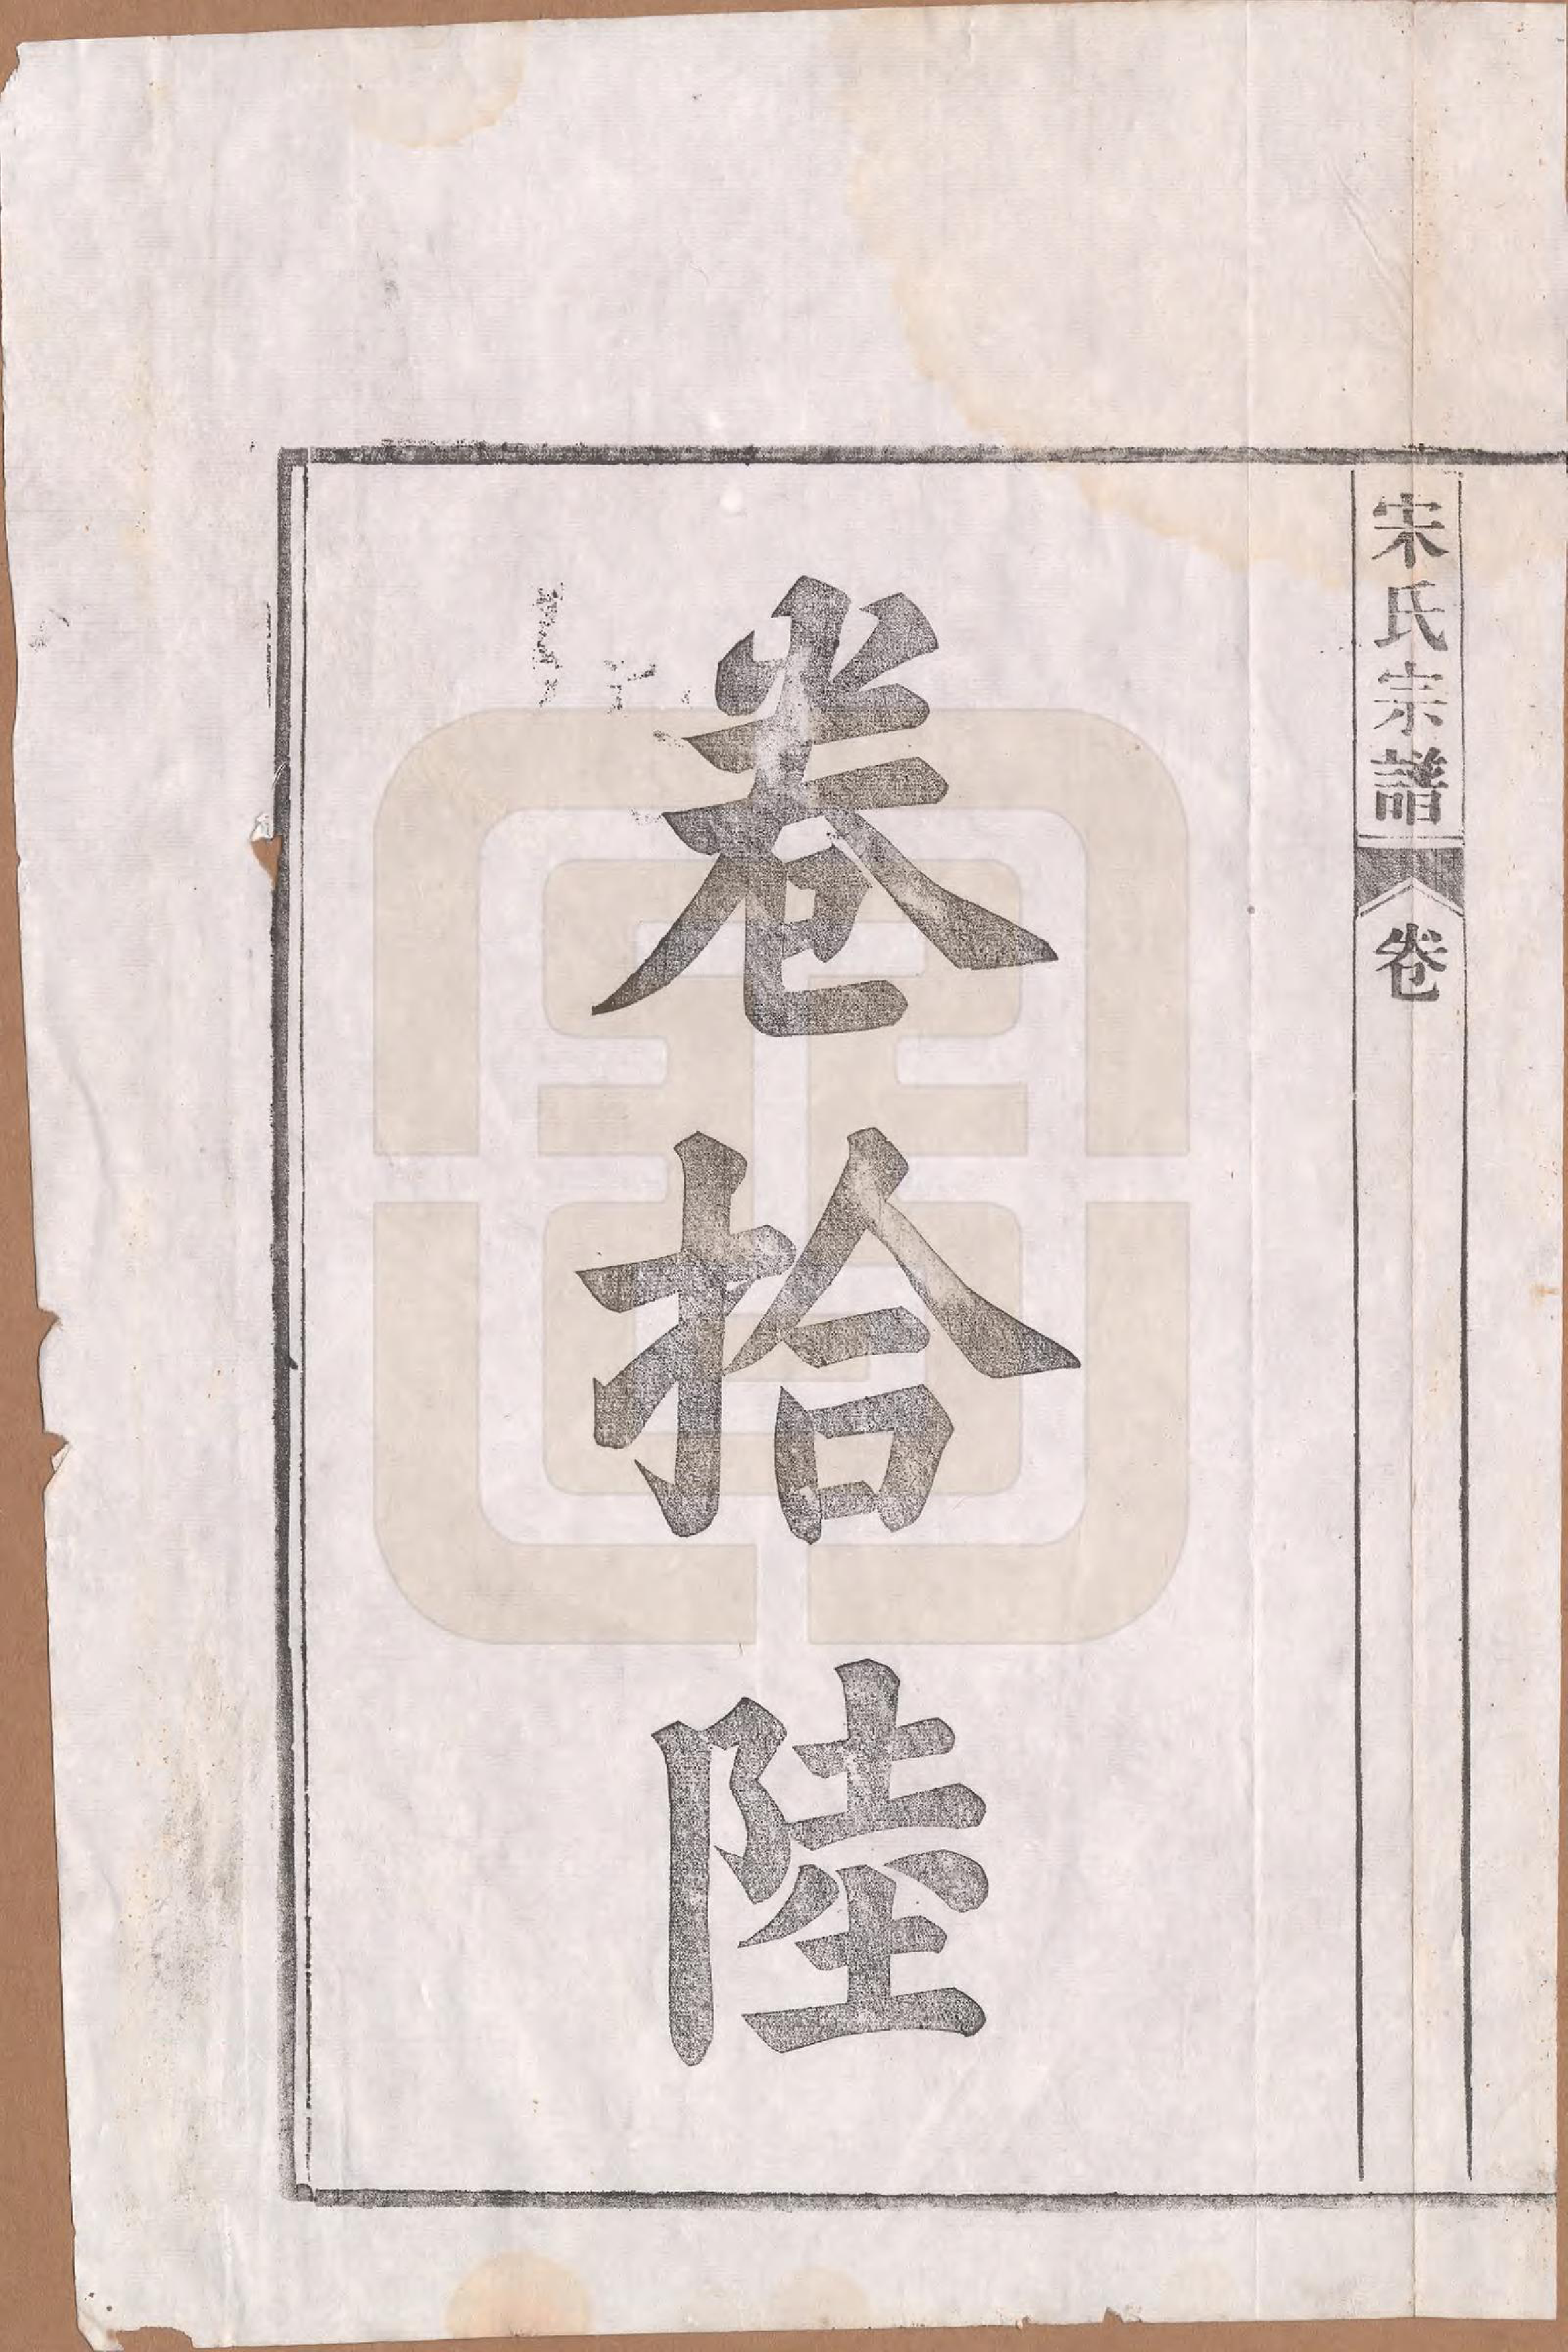 宋氏宗譜
卷
卷拾陸